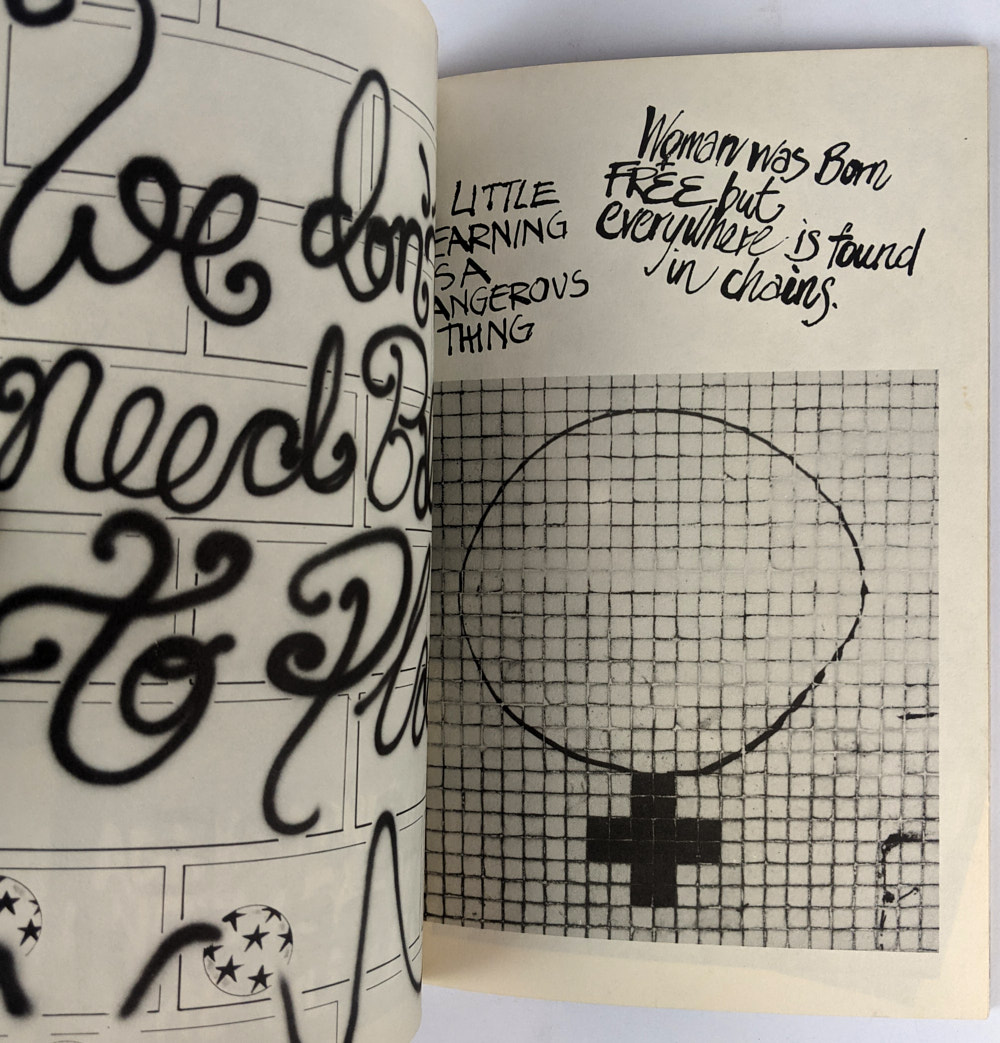 We don'
need Ba
To Pla
LITTLE
EARNING
S A
ANGEROUS
THING
Woman was Born
FREE but
everywhere is found
in chains.